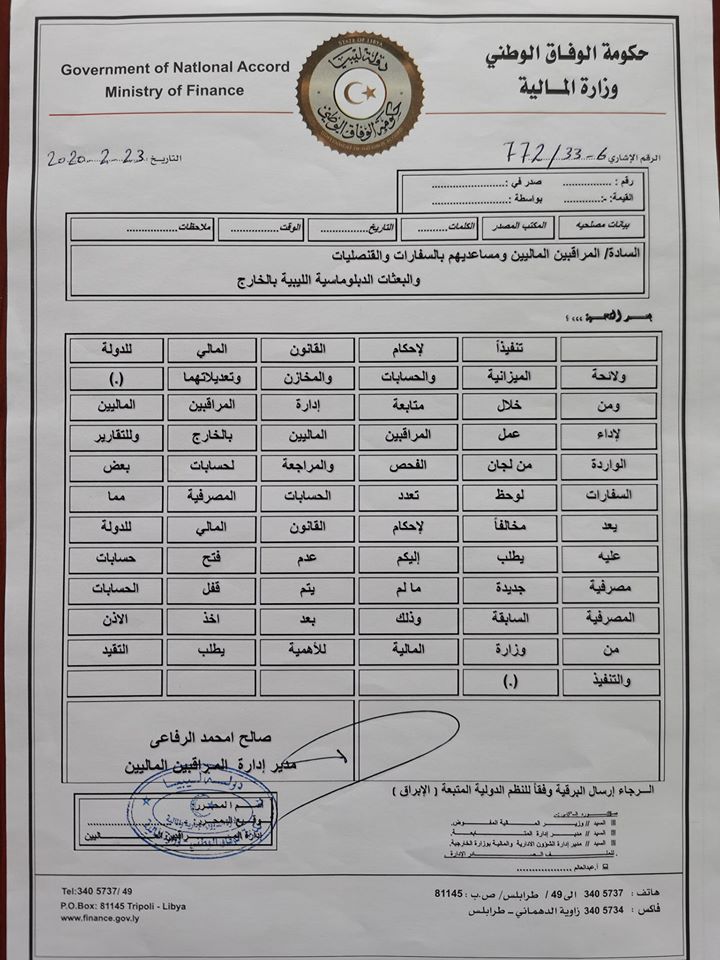 Government of National Accord
Ministry of Finance
حكومة الوفاق الوطني
وزارة المـالية
STATE OF LIBYA
دولة ليبيا
حكومة الوفاق الوطني
GOVERNMENT OF NATIONAL ACCORD
الرقم الإشاري: 6-33/772
التاريخ: 23-2-2020
رقم : ................ صدر في :........................
القيمة: :-............. بواسطة :........................
بيانات مصلحيه المكتب المصدر الكلمات.......... التاريخ................ الوقت................ ملاحظات................
السادة/ المراقبين الماليين ومساعديهم بالسفارات والقنصليات
والبعثات الدبلوماسية الليبية بالخارج
بعد التحية ،،،، ؛
تنفيذاً لإحكام القانون المالي للدولة
ولائحة الميزانية والحسابات والمخازن وتعديلاتهما (.)
ومن خلال متابعة إدارة المراقبين الماليين
لإداء عمل المراقبين الماليين بالخارج وللتقارير
الواردة من لجان الفحص والمراجعة لحسابات بعض
السفارات لوحظ تعدد الحسابات المصرفية مما
يعد مخالفاً لإحكام القانون المالي للدولة
عليه يطلب إليكم عدم فتح حسابات
مصرفية جديدة ما لم يتم قفل الحسابات
المصرفية السابقة وذلك بعد اخذ الاذن
من وزارة المالية للأهمية يطلب التقيد
والتنفيذ (.)
صالح امحمد الرفاعى
مدير إدارة المراقبين الماليين
الـرجاء إرسال البرقية وفقاً للنظم الدولية المتبعة ( الإبراق )
دولة ليبيا
اسم المحرر:
السيد // وزير المالية المفوض.
السيد // مدير إدارة المتابعة.
السيد // مدير إدارة الشؤون الادارية والمالية بوزارة الخارجية.
أ.عبدالعالم
Tel:340 5737/ 49
P.O.Box: 81145 Tripoli - Libya
www.finance.gov.ly
هاتف : 5737 340 الى49 / طرابلس/ ص.ب : 81145
فاكس : 5734 340 زاوية الدهماني – طرابلس